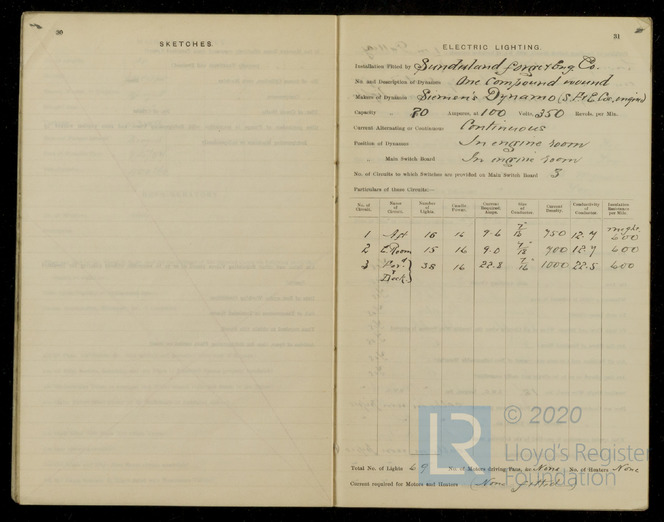 30
SKETCHES.
31
ELECTRIC LIGHTING.
Installation Fitted by Sunderland Forge & Eng Co.
No. and Description of Dynamos One Compound wound
Makers of Dynamos Siemen's Dynamo (S.F. & E. Cos. engine)
Capacity 70 Amperes, at 100 Volts, 350 Revols. per Min.
Current Alternating or Continuous Continuous
Position of Dynamos In engine room
" Main Switch Board In engine room
No. of Circuits to which Switches are provided on Main Switch Board 3
Particulars of these Circuits:—
No. of Circuit. Name of Circuit. Number of Lights. Candle Power. Current Required. Amps. Size of Conductor. Current Density. Conductivity of Conductor. Insulation Resistance per Mile.
1 Aft 16 16 9.6 7/18 750 12.7 megs. 600
2 E. Room 15 16 9.0 7/18 700 12.7 600
3 For'd 38 16 22.8 7/16 1000 22.5 600
Deck
Total No. of Lights 69 No. of Motors driving Fans, &c. None No. of Heaters None
Current required for Motors and Heaters (None fitted)
LR © 2020
Lloyd's Register
Foundation